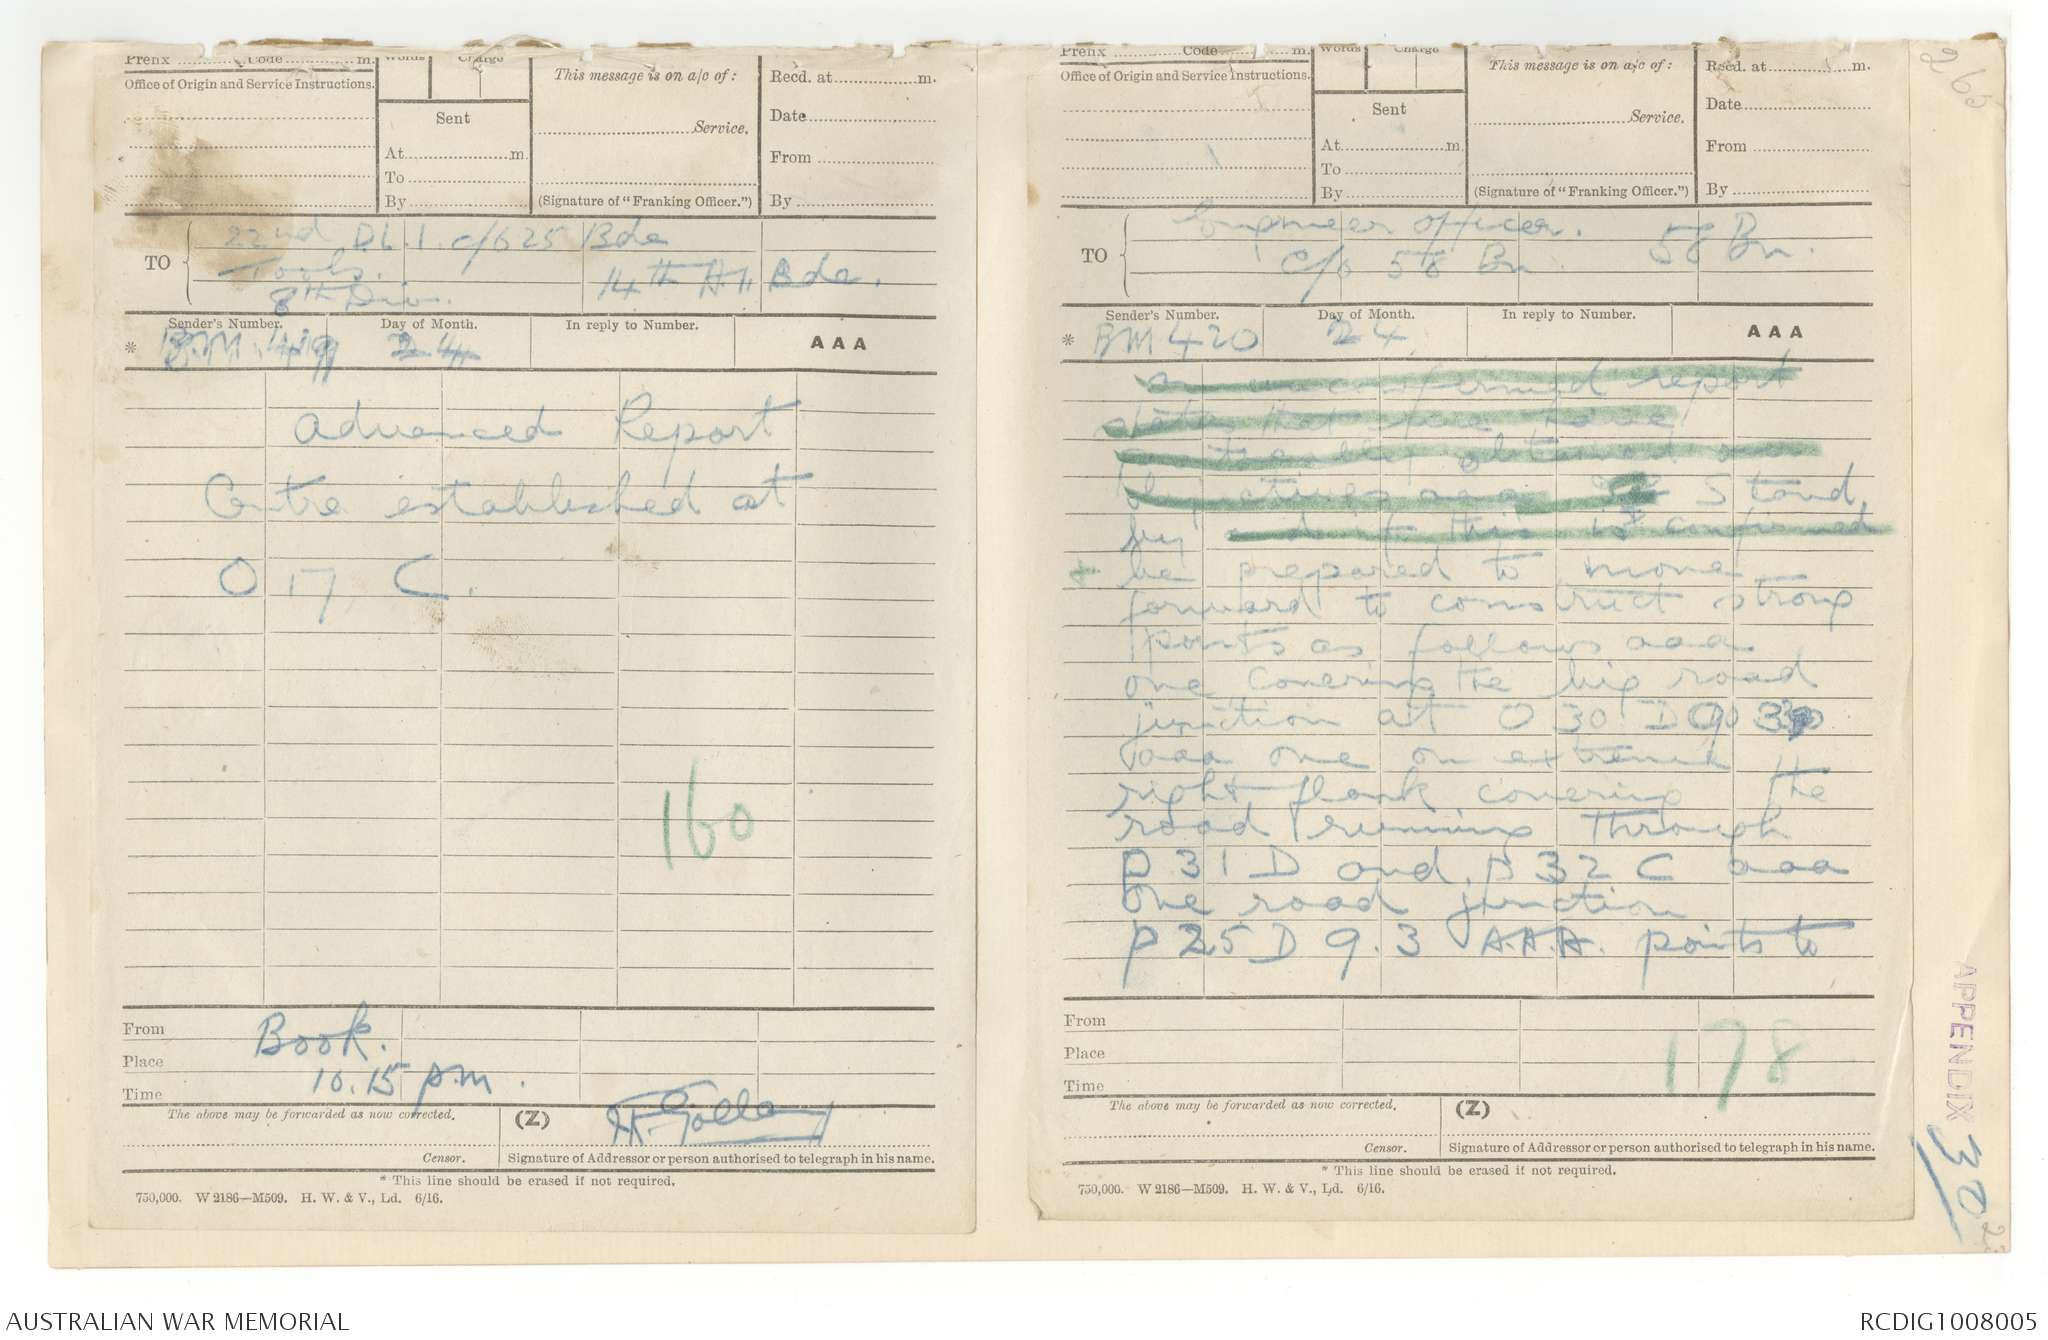 Prefix ............ Code ............ m.
Words
Charge
Office of Origin and Service Instructions.
Sent
At ............ m.
To
By
This message is on a/c of:
Service.
(Signature of "Franking Officer.")
Recd. at ............ m.
Date
From
By
TO
22nd D.L.I. c/o 25 Bde
Tools.
8th Div.
14th A.I. Bde.
Sender's Number.
Day of Month.
In reply to Number.
AAA
* BM 419
24
Advanced Report
Centre established at
O 17 C.
160
From
Book.
Place
Time
10.15 p.m.
The above may be forwarded as now corrected.
(Z)
Censor.
Signature of Addressor or person authorised to telegraph in his name.
* This line should be erased if not required.
750,000. W 2186—M509. H. W. & V., Ld. 6/16.
Prefix ............ Code ............ m.
Words
Charge
Office of Origin and Service Instructions.
Sent
At ............ m.
To
By
This message is on a/c of:
Service.
(Signature of "Franking Officer.")
Recd. at ............ m.
Date
From
By
TO
Engineer officer.
c/o 58 Bn
58 Bn.
Sender's Number.
Day of Month.
In reply to Number.
AAA
* BM 420
24
unconfirmed report
states that have
obtained
aaa Stand
by if this is confirmed
be prepared to move
forward to construct strong
points as follows aaa
one covering the big road
junction at O 30 D 90 30
aaa one on extreme
right flank covering the
road running through
P 31 D and P 32 C aaa
One road junction
P 25 D 9.3 A.A.A. points to
From
Place
Time
178
The above may be forwarded as now corrected.
(Z)
Censor.
Signature of Addressor or person authorised to telegraph in his name.
* This line should be erased if not required.
750,000. W 2186—M509. H. W. & V., Ld. 6/16.
APPENDIX 30
AUSTRALIAN WAR MEMORIAL
RCDIG1008005